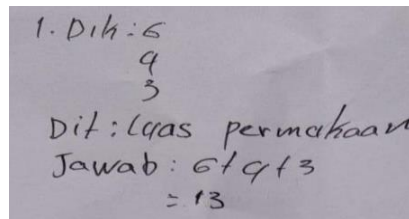 1. Dik : 6
4
3
Dit : Luas permukaan
Jawab : 6 + 4 + 3
= 13